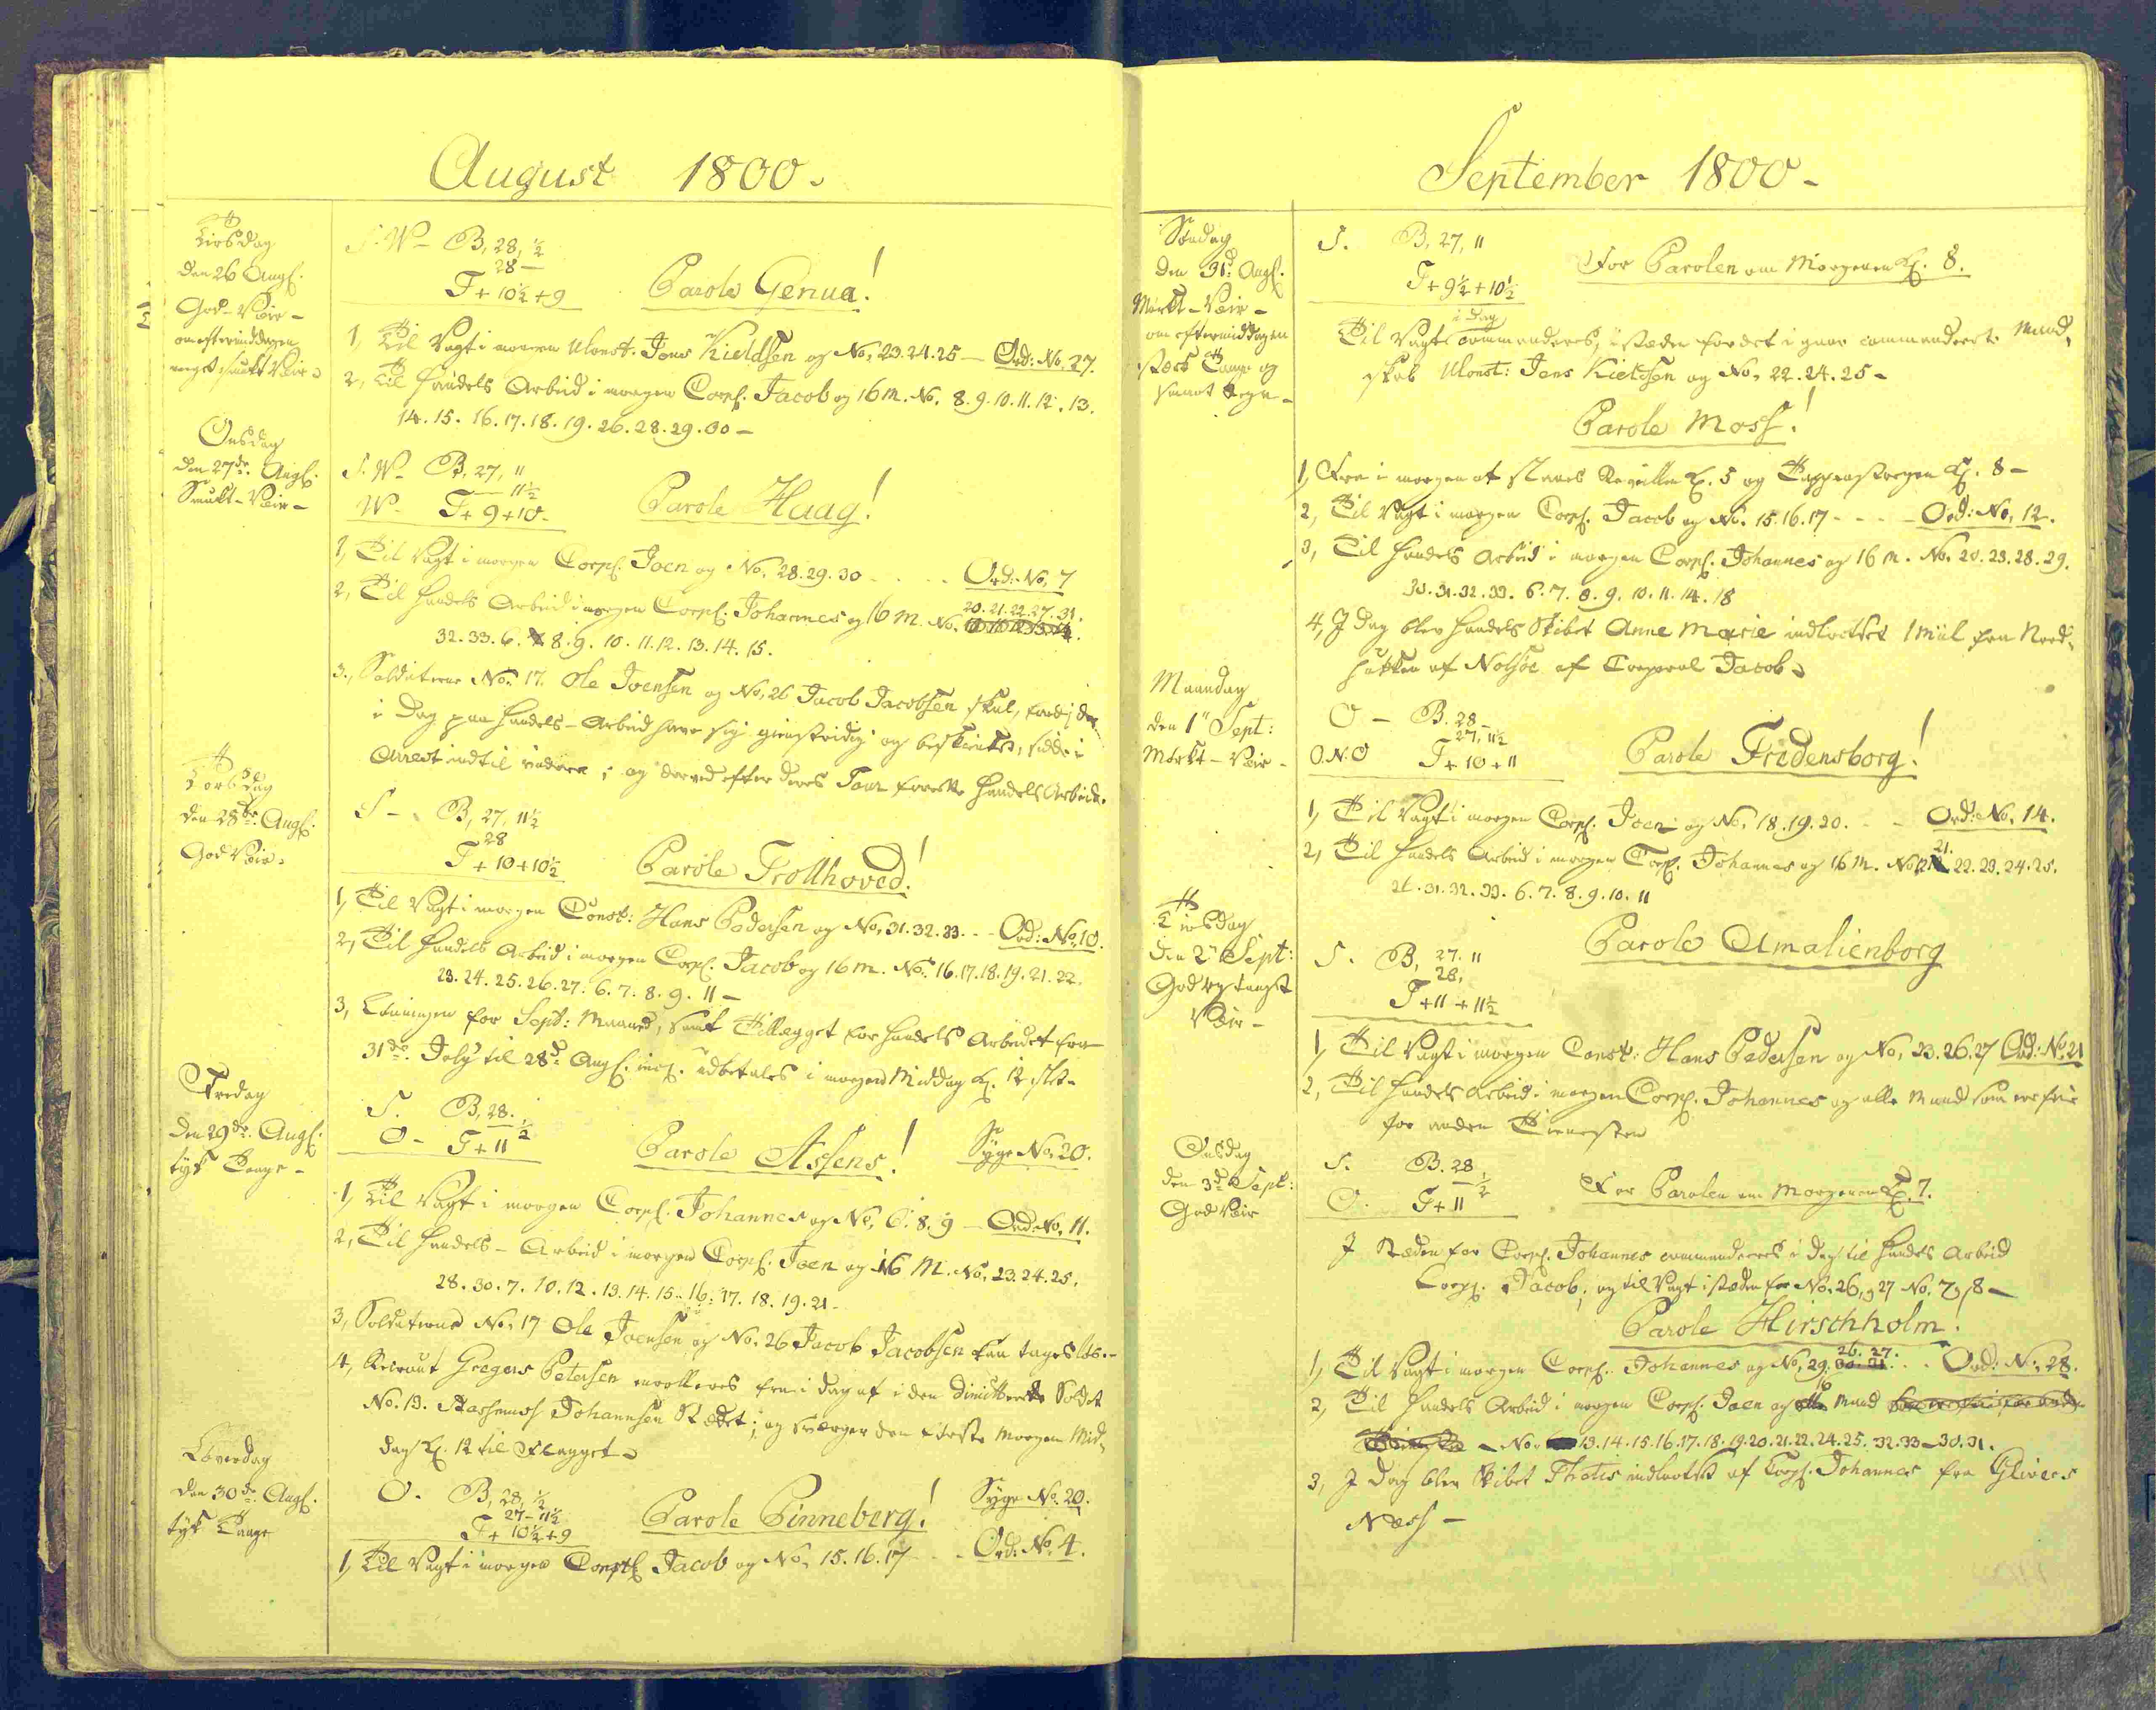 August 1800.
Tirsdag
den 26 Aug.
God-Veir-
om eftermiddagen
meget smukt Veir.
S.W- B, 28, ½
28-
T+ 10½+9
Parole Genua!
1, Til Vagt i morgen Const. Jens Kieldsen og No, 23.24.25- Ord: No, 27.
2, Til Handels Arbeid i morgen Corpl. Jacob og 16 M. No. 8.9.10.11.12.13.
14.15.16.17.18.19.26.28.29.30-
Onsdag
den 27de. Aug.
Smukt-Veir-
S.W- B, 27, 11
11½
W- T+ 9+10-
Parole Haag!
1, Til Vagt i morgen Corpl. Joen og No, 28.29.30 - - - - Ord: No, 7
2, Til Handels Arbeid i morgen Corpl. Johannes og 16 M. No. 20.21.22.27.31.
32.33.6. 8.9.10.11.12.13.14.15.
3., Soldaterne No. 17. Ole Joensen og No, 26 Jacob Jacobsen skal, fordi de
i Dag paa Handels-Arbeid have sig gienstridig og beskienket, sidde i
Arrest indtil videre; og derved efter deres Tour forrette Handels Arbeide.
Torsdag
den 28de. Aug.
God Veir.
S-. B, 27, 11½
28
T+10+10½
Parole Trollhoved!
1, Til Vagt i morgen Const: Hans Pedersen og No, 31.32.33.-- Ord: No. 10.
2, Til Handels Arbeid i morgen Corpl. Jacob og 16 M. No. 16.17.18.19.21.22.
23.24.25.26.27.6.7.8.9.11-
3, Lønningen for Sept: Maaned, samt Tillegget for Handels Arbeidet fra
31de. July til 28d. Aug. incl. udbetales i morgen Middag Kl. 12 slet-
Fredag
den 29de. Aug.
tyk Taage-
S. B, 28. ½
O- T+11
Parole Assens! Syge No, 20.
1, Til Vagt i morgen Corpl. Johannes og No, 6.8.9- Ord: No, 11.
2, Til Handels-Arbeid i morgen Corpl. Joen og 16 M. No, 23.24.25.
28.30.7.10.12.13.14.15.16.17.18.19.21-
3, Soldaterne No, 17 Ole Joensen og No. 26 Jacob Jacobsen kan tages løs.-
4, Recrout Gregers Petersen enrolleres fra i dag af i den dimitterede Soldat
No. 13. Johannsen Stædet; og sværger den første morgen Mid-
dag Kl. 12 til Flagget-
Løverdag
den 30de. Aug.
tyk Taage
O. B, 28, ½
27-11½
T+ 10½+9
Parole Pinneberg! Syge No. 20.
1, Til Vagt i morgen Corpl. Jacob og No, 15.16.17 - - Ord: No. 4.
September 1800-
Søndag
den 31d. Aug.
Mørkt-Veir-
om eftermiddagen
stærk Taage og
smaat Regn-
S. B, 27, 11
T+9½+10½
For Parolen om Morgenen Kl. 8.
i Dag
Til Vagt commanderes, i stæden for det i gaar commanderede Mand,
skab Const: Jens Kieldsen og No, 22.24.25-
Parole Moss!
1, Fra i morgen af slaaes Reveillen Kl. 5 og Tappenstregen Kl. 8-
2, Til Vagt i morgen Corpl. Jacob og No. 15.16.17 - - - - Ord: No, 12.
3, Til Handels Arbeid i morgen Corpl. Johannes og 16 M. No. 20.23.28.29.
30.31.32.33.6.7.8.9.10.11.14.18
4, J Dag blev Handels Skibet Anne Marie indlodset 1 Miil fra Nord-
hukken af Nolsøe af Corporal Jacob.
Maandag
den 1" Sept:
Mørkt-Veir-
O- B. 28-
27, 11½
O.N.O T+10+11
Parole Fredensborg!
1, Til Vagt i morgen Corpl. Joen og No, 18.19.20. - - Ord: No, 14.
2, Til Handels Arbeid i morgen Corpl. Johannes og 16 M. No, 21. 22.23.24.25.
26.31.32.33.6.7.8.9.10.11
Tirsdag
den 2" Sept:
God og taaget
Veir-
S. B, 27.11
28,
T+11+11½
Parole Amalienborg
1, Til Vagt i morgen Const: Hans Pedersen og No, 23.26.27 Ord: No. 21
2, Til Handels Arbeid i morgen Corpl. Johannes og alle Mand som ere frie
for anden Tieneste
Onsdag
den 3de Sept:
God Veir
S. B. 28 ½
O. T+11
For Parolen om Morgenen Kl. 7.
J Stæden for Corpl. Johannes commanderes i dag til Handels Arbeid
Corpl. Jacob; og til Vagt i stæden for No. 26, og 27 No. 7 og 8-
Parole Hirschholm.
1, Til Vagt i morgen Corpl. Johannes og No, 29. 26.27. - - Ord: No, 28.
2, Til Handels Arbeid i morgen Corpl. Joen og 16 Mand
No. 13.14.15.16.17.18.19.20.21.22.24.25.32.33-30.31.
3, J Dag blev Skibet Thetis indlodset af Corpl. Johannes fra Glivers
Næss-